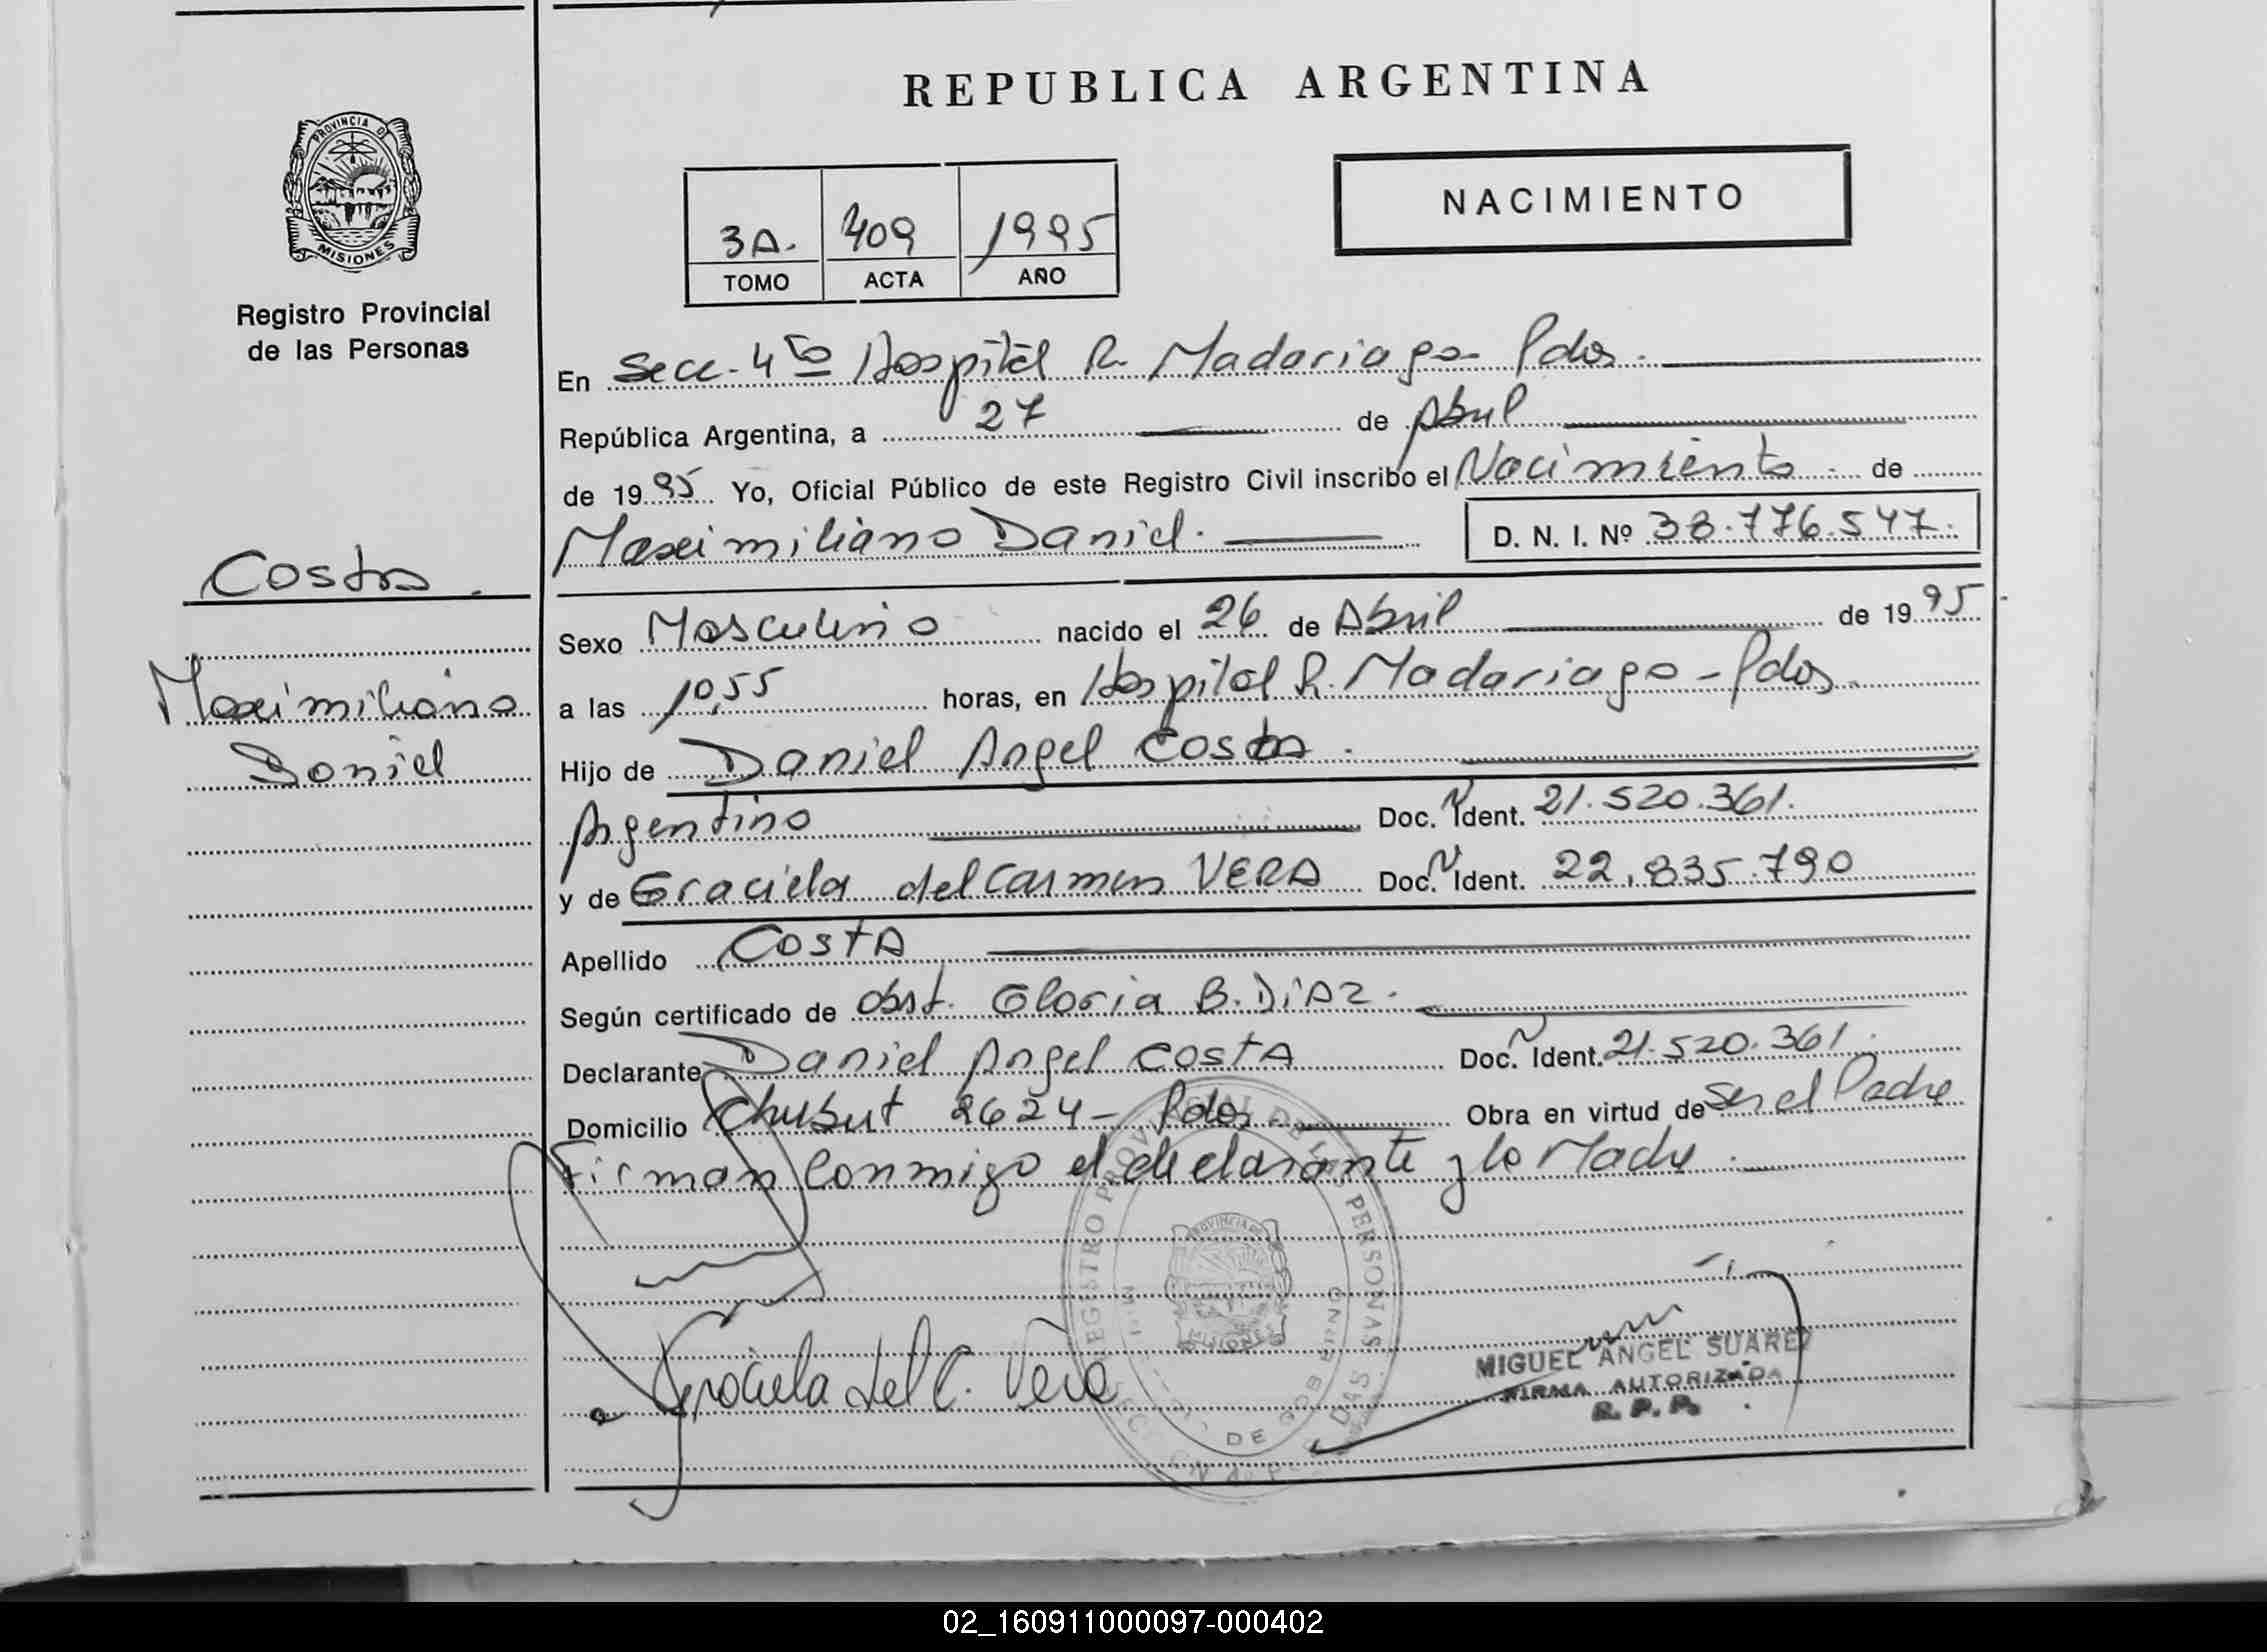 REPUBLICA ARGENTINA
PROVINCIA D
MISIONES
Registro Provincial
de las Personas
NACIMIENTO
3A. 409 1995
TOMO ACTA AÑO
En Secc. 4ta Hospital R. Madariaga - Pdas.
República Argentina, a 27 de Abril
de 1995 Yo, Oficial Público de este Registro Civil inscribo el Nacimiento de
Maximiliano Daniel. D. N. I. Nº 38.776.547.
Costa.
Maximiliano
Daniel
Sexo Masculino nacido el 26 de Abril de 1995
a las 10,55 horas, en Hospital R. Madariaga - Pdas.
Hijo de Daniel Angel Costa.
Argentino Doc. N Ident. 21.520.361.
y de Graciela del Carmen VERA Doc. N Ident. 22.835.790
Apellido COSTA
Según certificado de Obst. Gloria B. DiAZ.
Declarante Daniel Angel COSTA Doc. N Ident. 21.520.361.
Domicilio Chubut 2624 - Pdas. Obra en virtud de Ser el Padre
Firman Conmigo el declarante y la Madre.
REGISTRO PROVINCIAL DE LAS PERSONAS
PROVINCIA DE
MISIONES
DE GOBIERNO
Graciela del C. Vera
MIGUEL ANGEL SUAREZ
FIRMA AUTORIZADA
R. P. P.
02_160911000097-000402